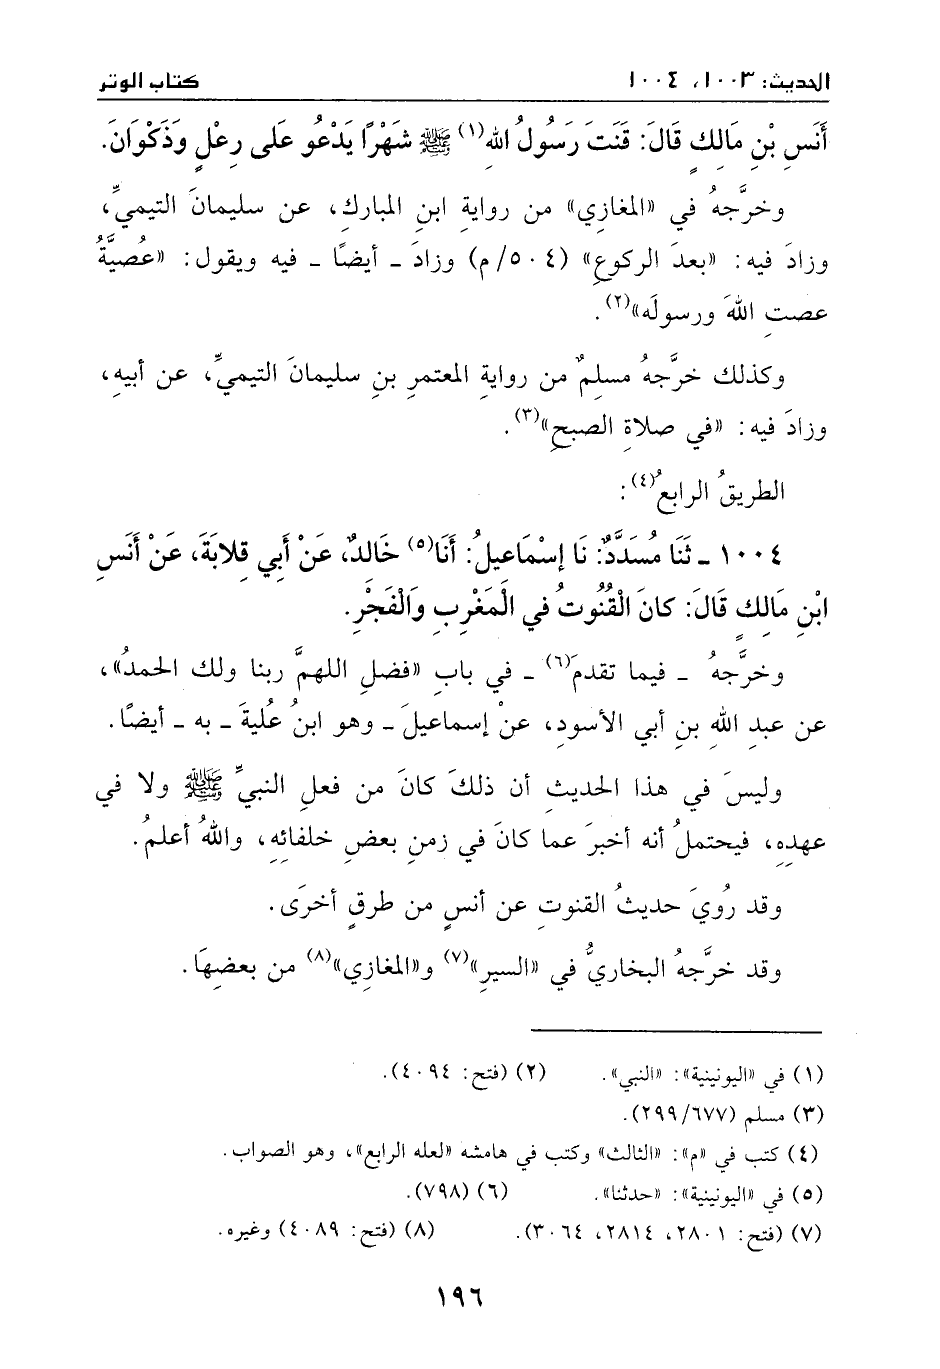 الحديث: ١٠٠٣، ١٠٠٤
كتاب الوتر
أَنَسِ بْنِ مَالِكٍ قَالَ: قَنَتَ رَسُولُ اللهِ(١) ﷺ شَهْرًا يَدْعُو عَلى رِعْلٍ وَذَكْوَانَ.
وخرَّجهُ في «المغازي» من روايةِ ابنِ المباركِ، عن سليمانَ التيميِّ،
وزادَ فيه: «بعدَ الركوعِ» (٥٠٤/م) وزادَ ـ أيضًا ـ فيه ويقول: «عُصيَّةُ
عصتِ اللهَ ورسولَه»(٢).
وكذلك خرَّجهُ مسلمٌ من روايةِ المعتمرِ بنِ سليمانَ التيميِّ، عن أبيهِ،
وزادَ فيه: «في صلاةِ الصبحِ»(٣).
الطريقُ الرابعُ(٤):
١٠٠٤ ـ ثَنَا مُسَدَّدٌ: نَا إِسْمَاعِيلُ: أَنَا(٥) خَالدٌ، عَنْ أَبِي قِلابَةَ، عَنْ أَنَسِ
ابْنِ مَالِكٍ قَالَ: كانَ الْقُنُوتُ في الْمَغْرِبِ وَالْفَجْرِ.
وخرَّجهُ ـ فيما تقدمَ(٦) ـ في بابِ «فضلِ اللهمَّ ربنا ولك الحمدُ»،
عن عبدِ اللهِ بنِ أبي الأسودِ، عنْ إسماعيلَ ـ وهو ابنُ عُليةَ ـ به ـ أيضًا.
وليسَ في هذا الحديثِ أن ذلكَ كانَ من فعلِ النبيِّ ﷺ ولا في
عهدِهِ، فيحتملُ أنه أخبرَ عما كانَ في زمنِ بعضِ خلفائِهِ، واللهُ أعلمُ.
وقد رُويَ حديثُ القنوتِ عن أنسٍ من طرقٍ أخرَى.
وقد خرَّجهُ البخاريُّ في «السيرِ»(٧) و«المغازِي»(٨) من بعضِهَا.
(١) في «اليونينية»: «النبي». (٢) (فتح: ٤٠٩٤).
(٣) مسلم (٢٩٩/٦٧٧).
(٤) كتب في «م»: «الثالث» وكتب في هامشه «لعله الرابع»، وهو الصواب.
(٥) في «اليونينية»: «حدثنا». (٦) (٧٩٨).
(٧) (فتح: ٢٨٠١، ٢٨١٤، ٣٠٦٤). (٨) (فتح: ٤٠٨٩) وغيره.
١٩٦